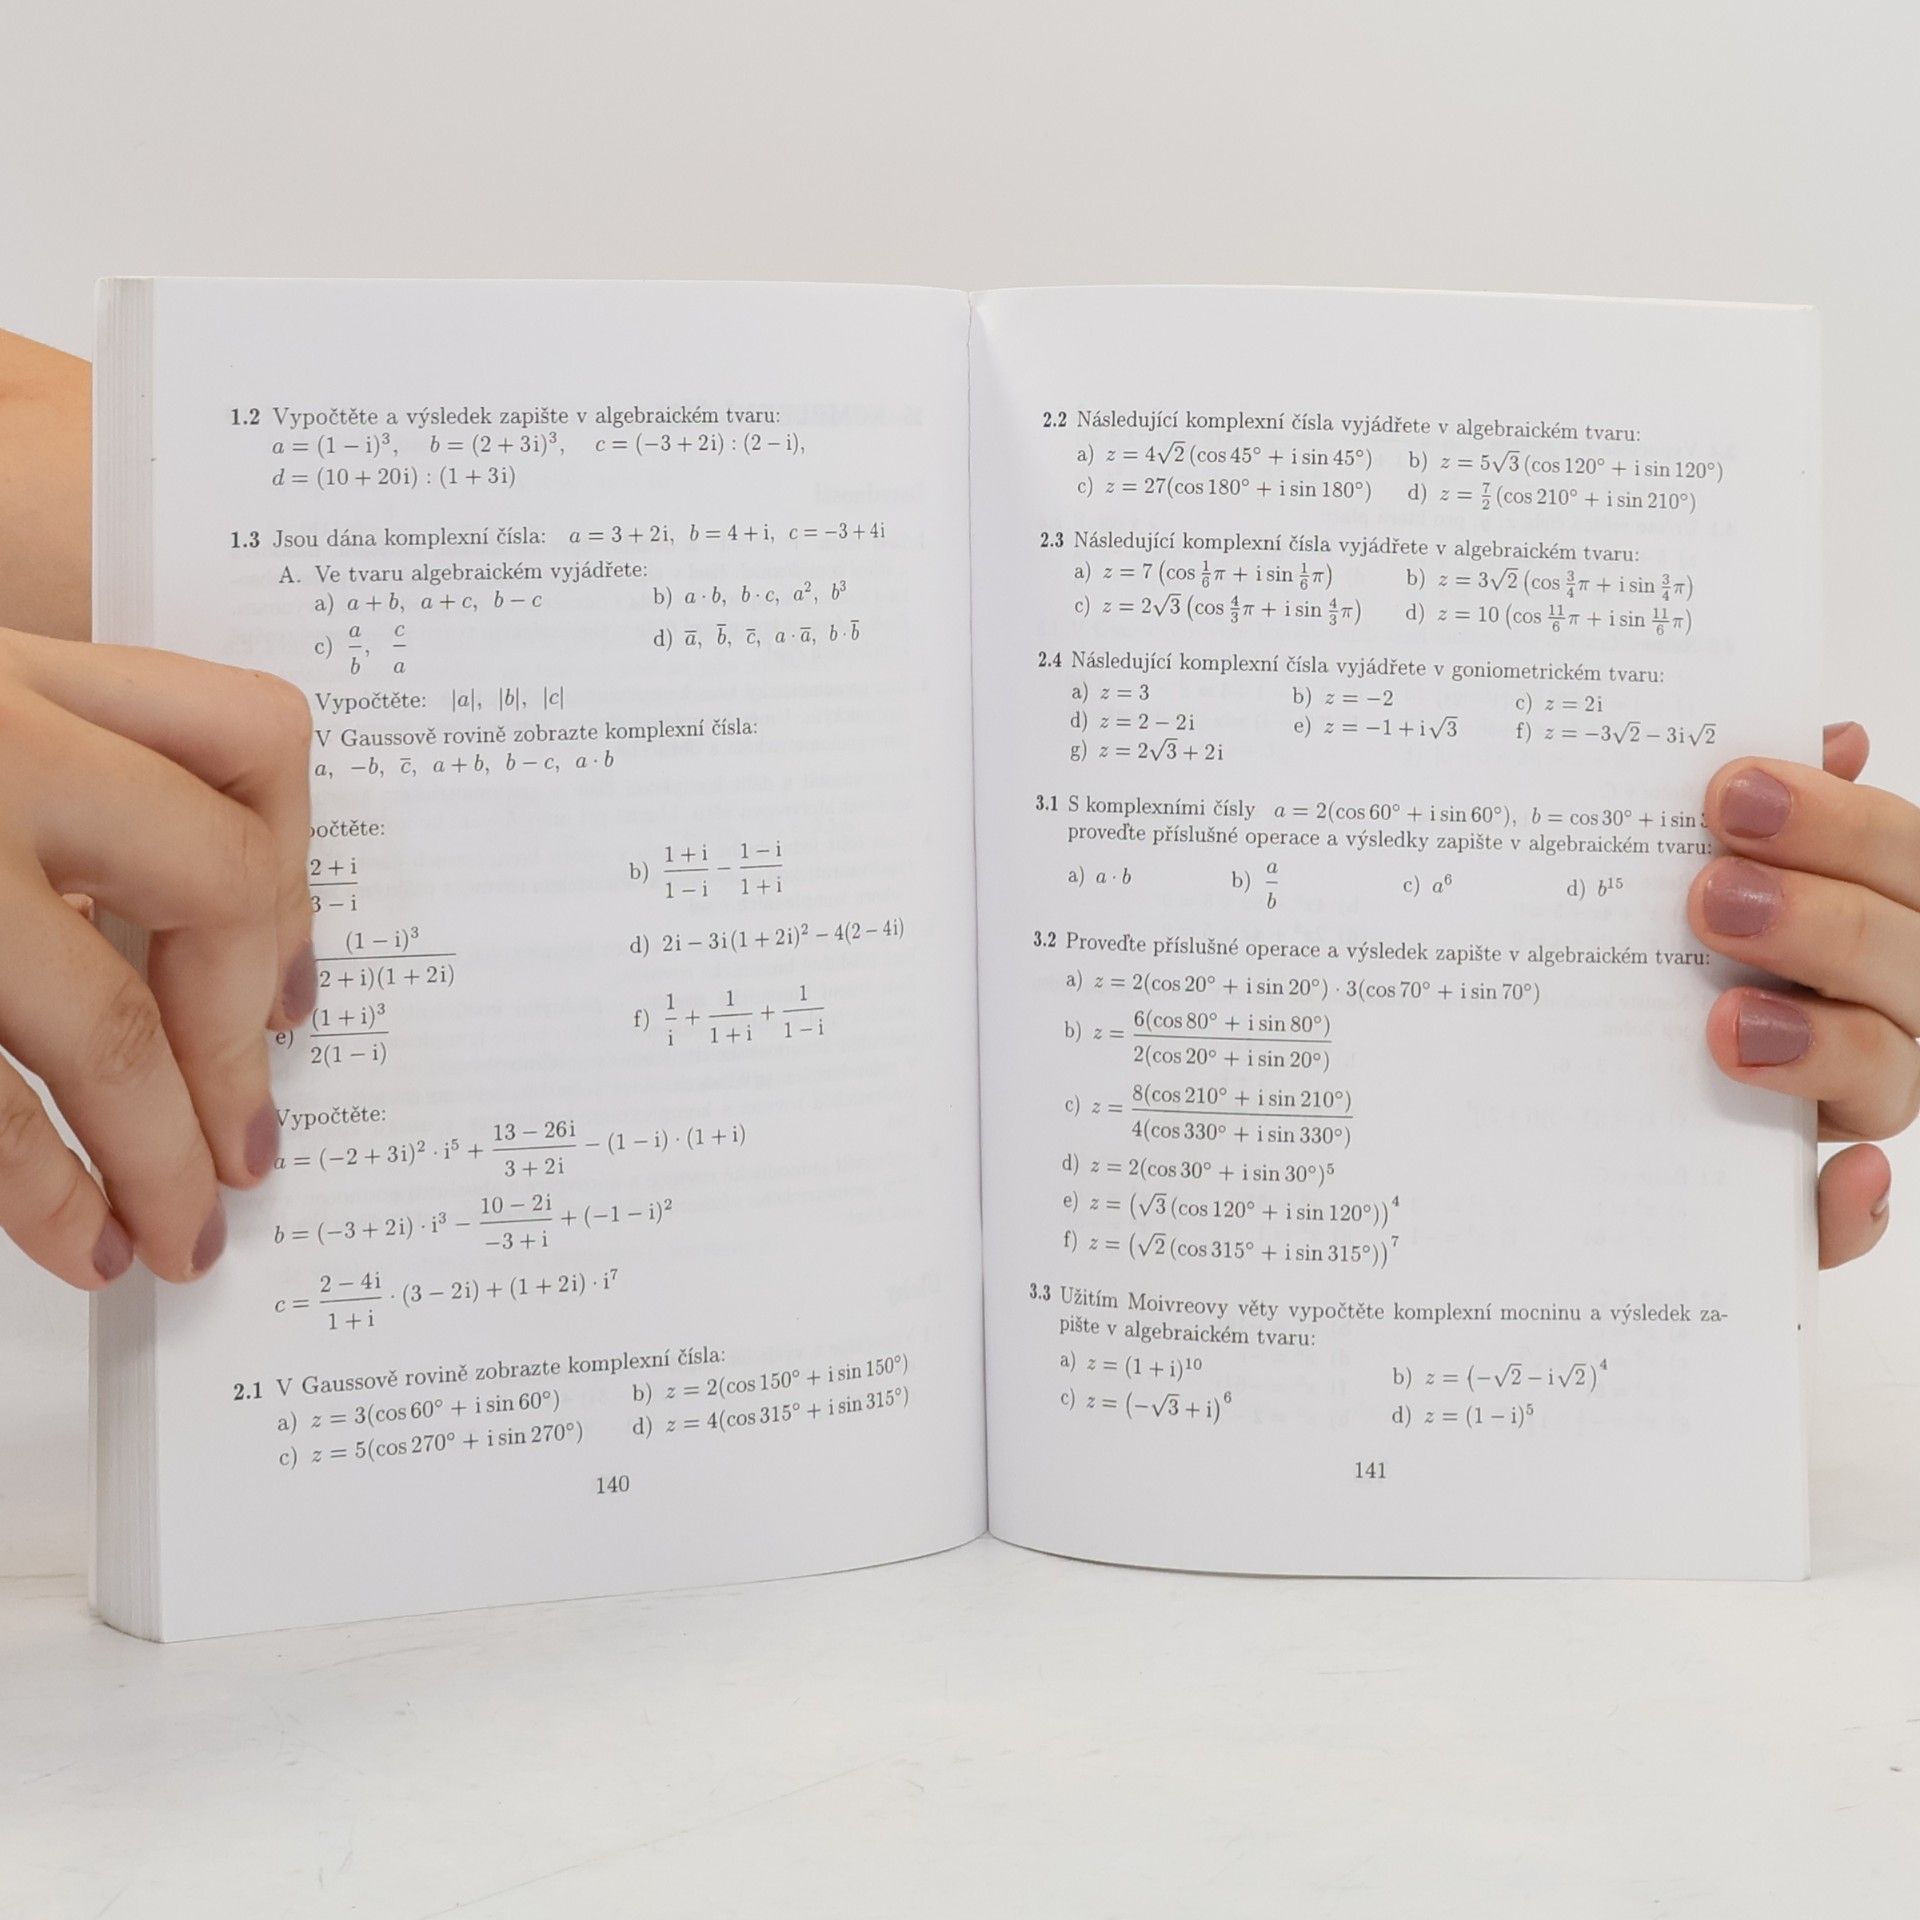 1.2 Vypočtěte a výsledek zapište v algebraickém tvaru:
a = (1 − i)³, b = (2 + 3i)³, c = (−3 + 2i) : (2 − i),
d = (10 + 20i) : (1 + 3i)
1.3 Jsou dána komplexní čísla: a = 3 + 2i, b = 4 + i, c = −3 + 4i
A. Ve tvaru algebraickém vyjádřete:
a) a + b, a + c, b − c b) a · b, b · c, a², b³
c) a/b, c/a d) a̅, b̅, c̅, a · a̅, b · b̅
Vypočtěte: |a|, |b|, |c|
V Gaussově rovině zobrazte komplexní čísla:
a, −b, c̅, a + b, b − c, a · b
očtěte:
(2 + i)/(3 − i) b) (1 + i)/(1 − i) − (1 − i)/(1 + i)
(1 − i)³/(2 + i)(1 + 2i) d) 2i − 3i(1 + 2i)² − 4(2 − 4i)
e) (1 + i)³/2(1 − i) f) 1/i + 1/(1 + i) + 1/(1 − i)
Vypočtěte:
a = (−2 + 3i)² · i⁵ + (13 − 26i)/(3 + 2i) − (1 − i) · (1 + i)
b = (−3 + 2i) · i³ − (10 − 2i)/(−3 + i) + (−1 − i)²
c = (2 − 4i)/(1 + i) · (3 − 2i) + (1 + 2i) · i⁷
2.1 V Gaussově rovině zobrazte komplexní čísla:
a) z = 3(cos 60° + i sin 60°) b) z = 2(cos 150° + i sin 150°)
c) z = 5(cos 270° + i sin 270°) d) z = 4(cos 315° + i sin 315°)
140
2.2 Následující komplexní čísla vyjádřete v algebraickém tvaru:
a) z = 4√2 (cos 45° + i sin 45°) b) z = 5√3 (cos 120° + i sin 120°)
c) z = 27(cos 180° + i sin 180°) d) z = 7/2 (cos 210° + i sin 210°)
2.3 Následující komplexní čísla vyjádřete v algebraickém tvaru:
a) z = 7 (cos 1/6 π + i sin 1/6 π) b) z = 3√2 (cos 3/4 π + i sin 3/4 π)
c) z = 2√3 (cos 4/3 π + i sin 4/3 π) d) z = 10 (cos 11/6 π + i sin 11/6 π)
2.4 Následující komplexní čísla vyjádřete v goniometrickém tvaru:
a) z = 3 b) z = −2 c) z = 2i
d) z = 2 − 2i e) z = −1 + i√3 f) z = −3√2 − 3i√2
g) z = 2√3 + 2i
3.1 S komplexními čísly a = 2(cos 60° + i sin 60°), b = cos 30° + i sin
proveďte příslušné operace a výsledky zapište v algebraickém tvaru:
a) a · b b) a/b c) a⁶ d) b¹⁵
3.2 Proveďte příslušné operace a výsledek zapište v algebraickém tvaru:
a) z = 2(cos 20° + i sin 20°) · 3(cos 70° + i sin 70°)
b) z = 6(cos 80° + i sin 80°)/2(cos 20° + i sin 20°)
c) z = 8(cos 210° + i sin 210°)/4(cos 330° + i sin 330°)
d) z = 2(cos 30° + i sin 30°)⁵
e) z = (√3 (cos 120° + i sin 120°))⁴
f) z = (√2 (cos 315° + i sin 315°))⁷
3.3 Užitím Moivreovy věty vypočtěte komplexní mocninu a výsledek za-
pište v algebraickém tvaru:
a) z = (1 + i)¹⁰ b) z = (−√2 − i√2)⁴
c) z = (−√3 + i)⁶ d) z = (1 − i)⁵
141